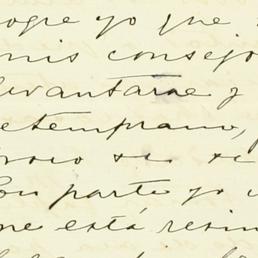 ogre yo que
mis consejo
levantarse y
temprano,
si
En parte yo
me está resin